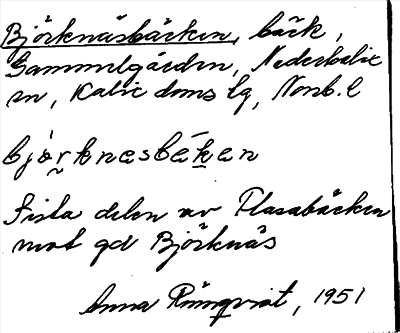 Björknäsbäcken, bäck,
Gammelgården, Nederkalix
sn, Kalix doms lg, Norrb. l
bjȯrknesbékен
Sista delen av Flasabäcken
mot gd Björknäs
Anna Rönnqvist, 1951